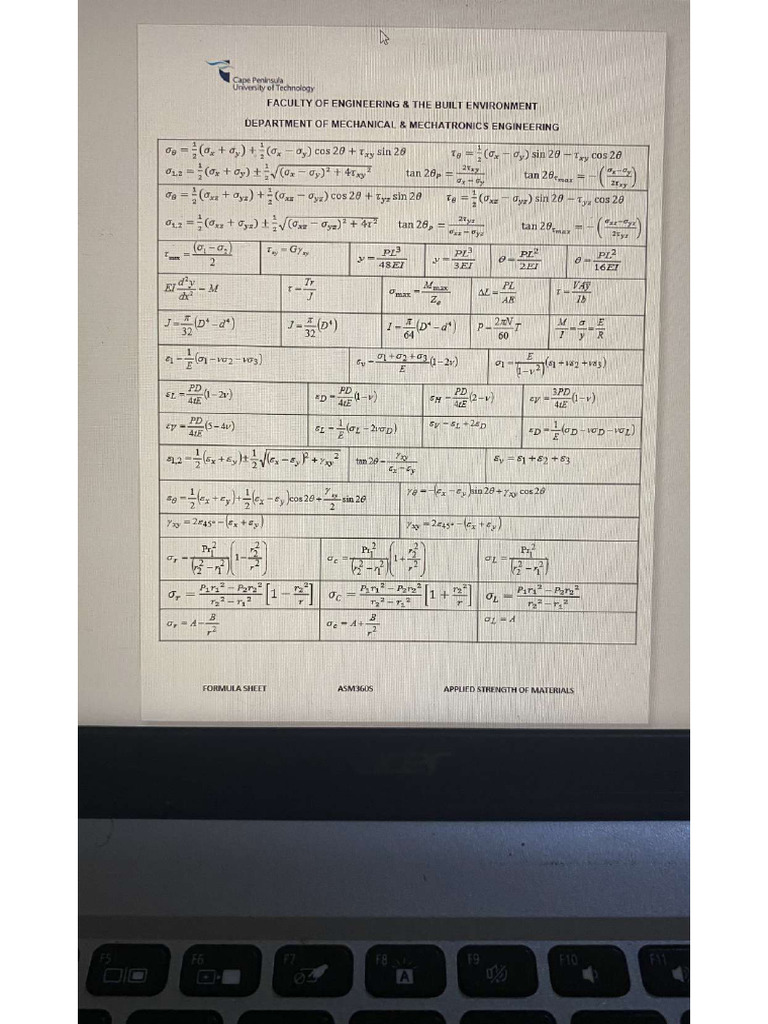 Cape Peninsula
University of Technology
FACULTY OF ENGINEERING & THE BUILT ENVIRONMENT
DEPARTMENT OF MECHANICAL & MECHATRONICS ENGINEERING
σθ = 1/2(σx + σy) + 1/2(σx − σy) cos 2θ + τxy sin 2θ τθ = 1/2(σx − σy) sin 2θ − τxy cos 2θ
σ1,2 = 1/2(σx + σy) ± 1/2√((σx − σy)² + 4τxy²) tan 2θP = 2τxy/(σx − σy) tan 2θτmax = −((σx−σy)/2τxy)
σθ = 1/2(σxz + σyz) + 1/2(σxz − σyz) cos 2θ + τyz sin 2θ τθ = 1/2(σxz − σyz) sin 2θ − τyz cos 2θ
σ1,2 = 1/2(σxz + σyz) ± 1/2√((σxz − σyz)² + 4τ²) tan 2θP = 2τyz/(σxz − σyz) tan 2θτmax = −((σxz−σyz)/2τyz)
τmax = (σ1 − σ2)/2 τxy = Gγxy y = PL³/48EI y = PL³/3EI θ = PL²/2EI θ = PL²/16EI
EI d²y/dx² − M τ = Tr/J σmax = Mmax/Ze ΔL = PL/AE τ = VAȳ/Ib
J = π/32(D⁴ − d⁴) J = π/32(D⁴) I = π/64(D⁴ − d⁴) P = 2πN/60 T M/I = σ/y = E/R
ε1 = 1/E(σ1 − νσ2 − νσ3) εv = (σ1 + σ2 + σ3)/E (1 − 2ν) σ1 = E/(1 − ν²)(ε1 + νε2 + νε3)
εL = PD/4tE(1 − 2ν) εD = PD/4tE(1 − ν) εH = PD/4tE(2 − ν) εV = 3PD/4tE(1 − ν)
εV = PD/4tE(5 − 4ν) εL = 1/E(σL − 2νσD) εV = εL + 2εD εD = 1/E(σD − νσD − νσL)
ε1,2 = 1/2(εx + εy) ± 1/2√((εx − εy)² + γxy²) tan 2θ = γxy/(εx − εy) εv = ε1 + ε2 + ε3
εθ = 1/2(εx + εy) + 1/2(εx − εy) cos 2θ + γxy/2 sin 2θ γθ = −(εx − εy) sin 2θ + γxy cos 2θ
γxy = 2ε45° − (εx + εy) γxy = 2ε45° − (εx + εy)
σr = Pr1²/(r2² − r1²)(1 − r2²/r²) σc = Pr1²/(r2² − r1²)(1 + r2²/r²) σL = Pr1²/(r2² − r1²)
σr = (P1r1² − P2r2²)/(r2² − r1²)[1 − r2²/r] σC = (P1r1² − P2r2²)/(r2² − r1²)[1 + r2²/r] σL = (P1r1² − P2r2²)/(r2² − r1²)
σr = A − B/r² σc = A + B/r² σL = A
FORMULA SHEET ASM360S APPLIED STRENGTH OF MATERIALS
F5 F6 F7 F8 F9 F10 F11
A